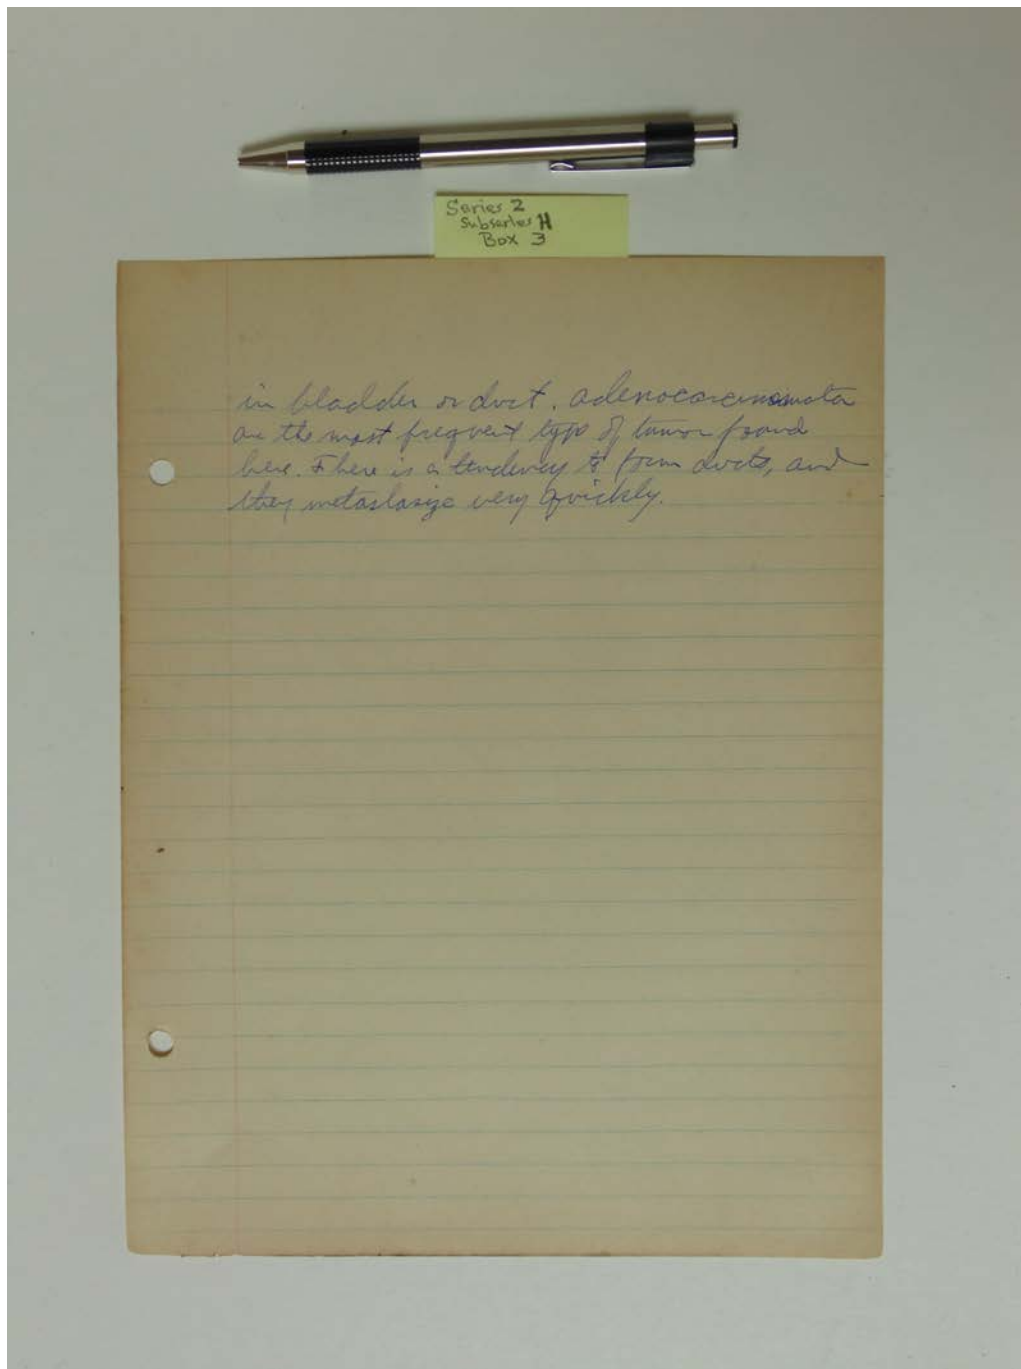 Series 2
Subseries H
Box 3
in bladder or duct. Adenocarcinomata
are the most frequent type of tumor found
here. There is a tendency to form ducts, and
they metastasize very quickly.